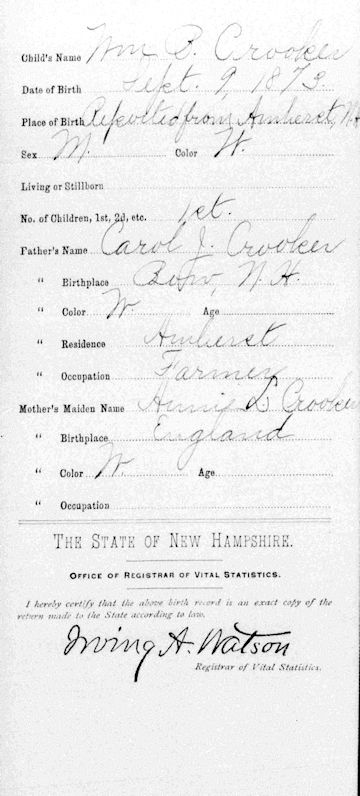 Child's Name Wm B. Crooker
Date of Birth Sept. 9, 1873.
Place of Birth Reported from Amherst, N.H
Sex M. Color W.
Living or Stillborn
No. of Children, 1st, 2d, etc. 1st.
Father's Name Carol J. Crooker
" Birthplace Bow, N.H.
" Color W. Age
" Residence Amherst
" Occupation Farmer
Mother's Maiden Name Annie L Crooker
" Birthplace England
" Color W. Age
" Occupation
THE STATE OF NEW HAMPSHIRE.
OFFICE OF REGISTRAR OF VITAL STATISTICS.
I hereby certify that the above birth record is an exact copy of the
return made to the State according to law.
Irving A. Watson
Registrar of Vital Statistics.